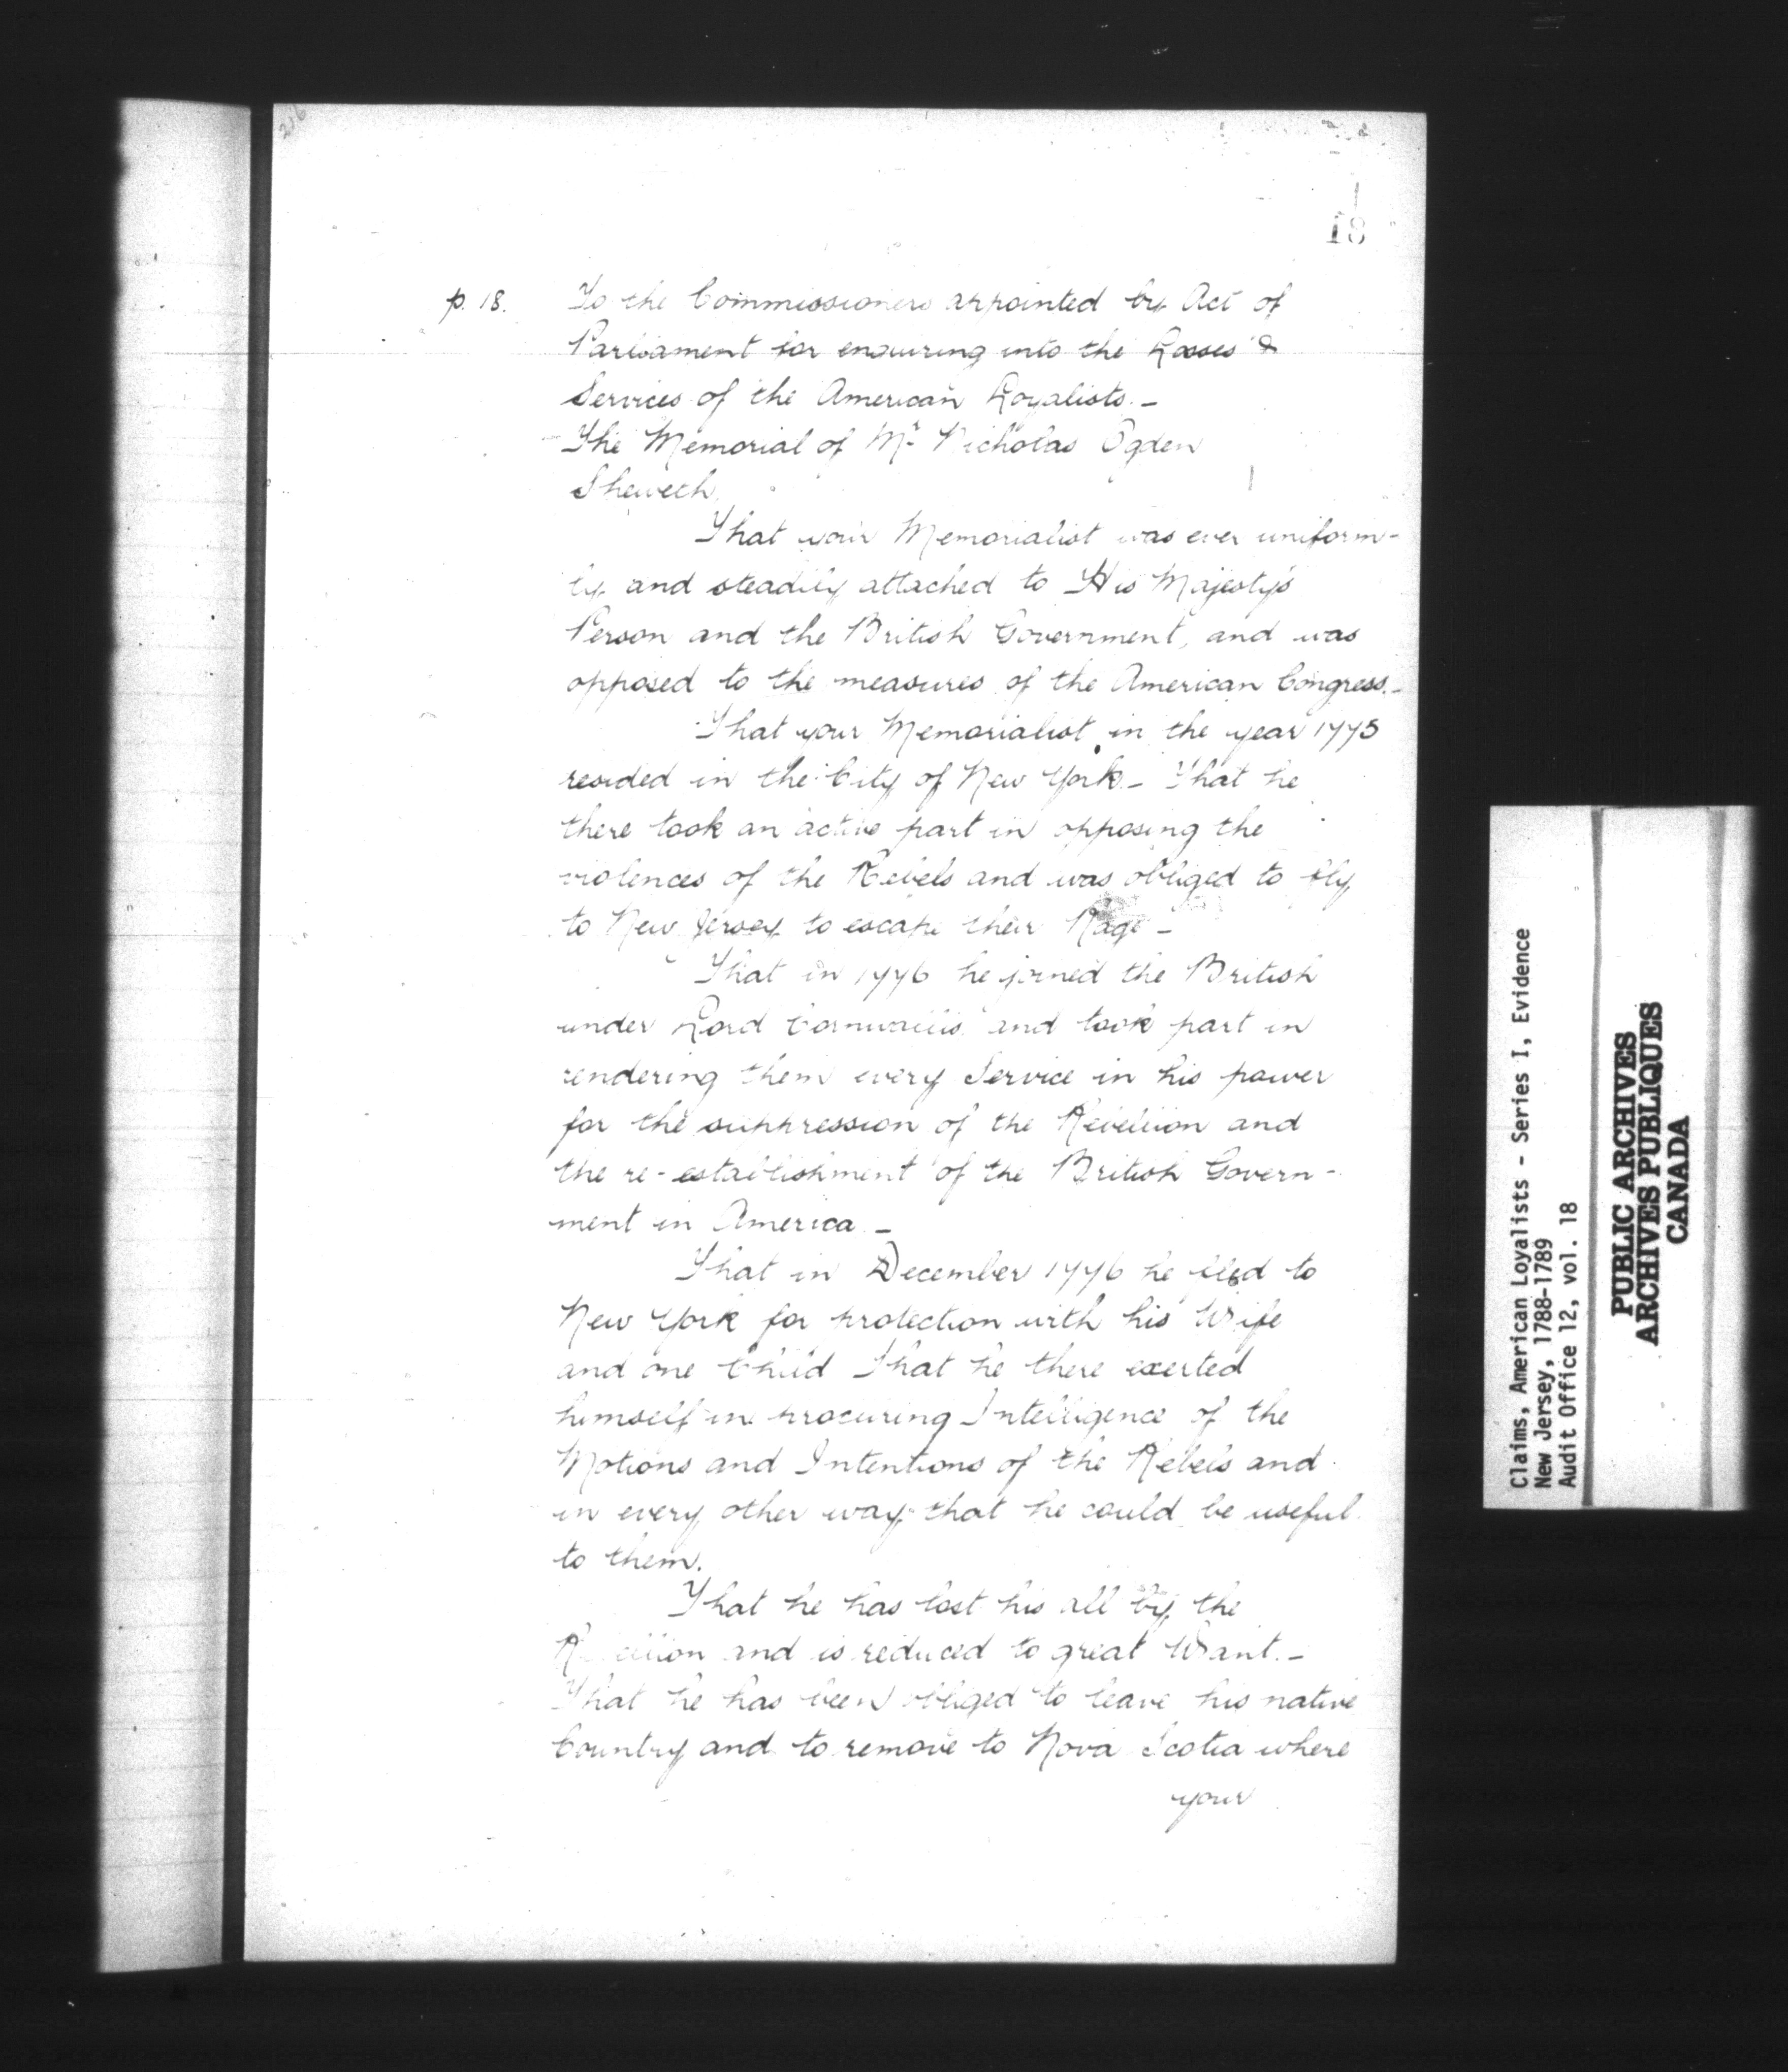 216
18
p. 18. To the Commissioners appointed by Act of
Parliament for enquiring into the Losses &
Services of the American Loyalists. –
The Memorial of Mr Nicholas Ogden
Sheweth
That your Memorialist was ever uniform-
ly and steadily attached to His Majesty's
Person and the British Government, and was
opposed to the measures of the American Congress. –
That your Memorialist in the year 1775
resided in the City of New York. – That he
there took an active part in opposing the
violences of the Rebels and was obliged to fly
to New Jersey to escape their Rage –
That in 1776 he joined the British
under Lord Cornwallis and took part in
rendering them every Service in his power
for the suppression of the Rebellion and
the re-establishment of the British Govern-
ment in America –
That in December 1776 he fled to
New York for protection with his Wife
and one Child That he there exerted
himself in procuring Intelligence of the
Motions and Intentions of the Rebels and
in every other way that he could be useful
to them.
That he has lost his all by the
Rebellion and is reduced to great Want. –
That he has been obliged to leave his native
Country and to remove to Nova Scotia where
your
Claims, American Loyalists - Series I, Evidence
New Jersey, 1788-1789
Audit Office 12, vol. 18
PUBLIC ARCHIVES
ARCHIVES PUBLIQUES
CANADA